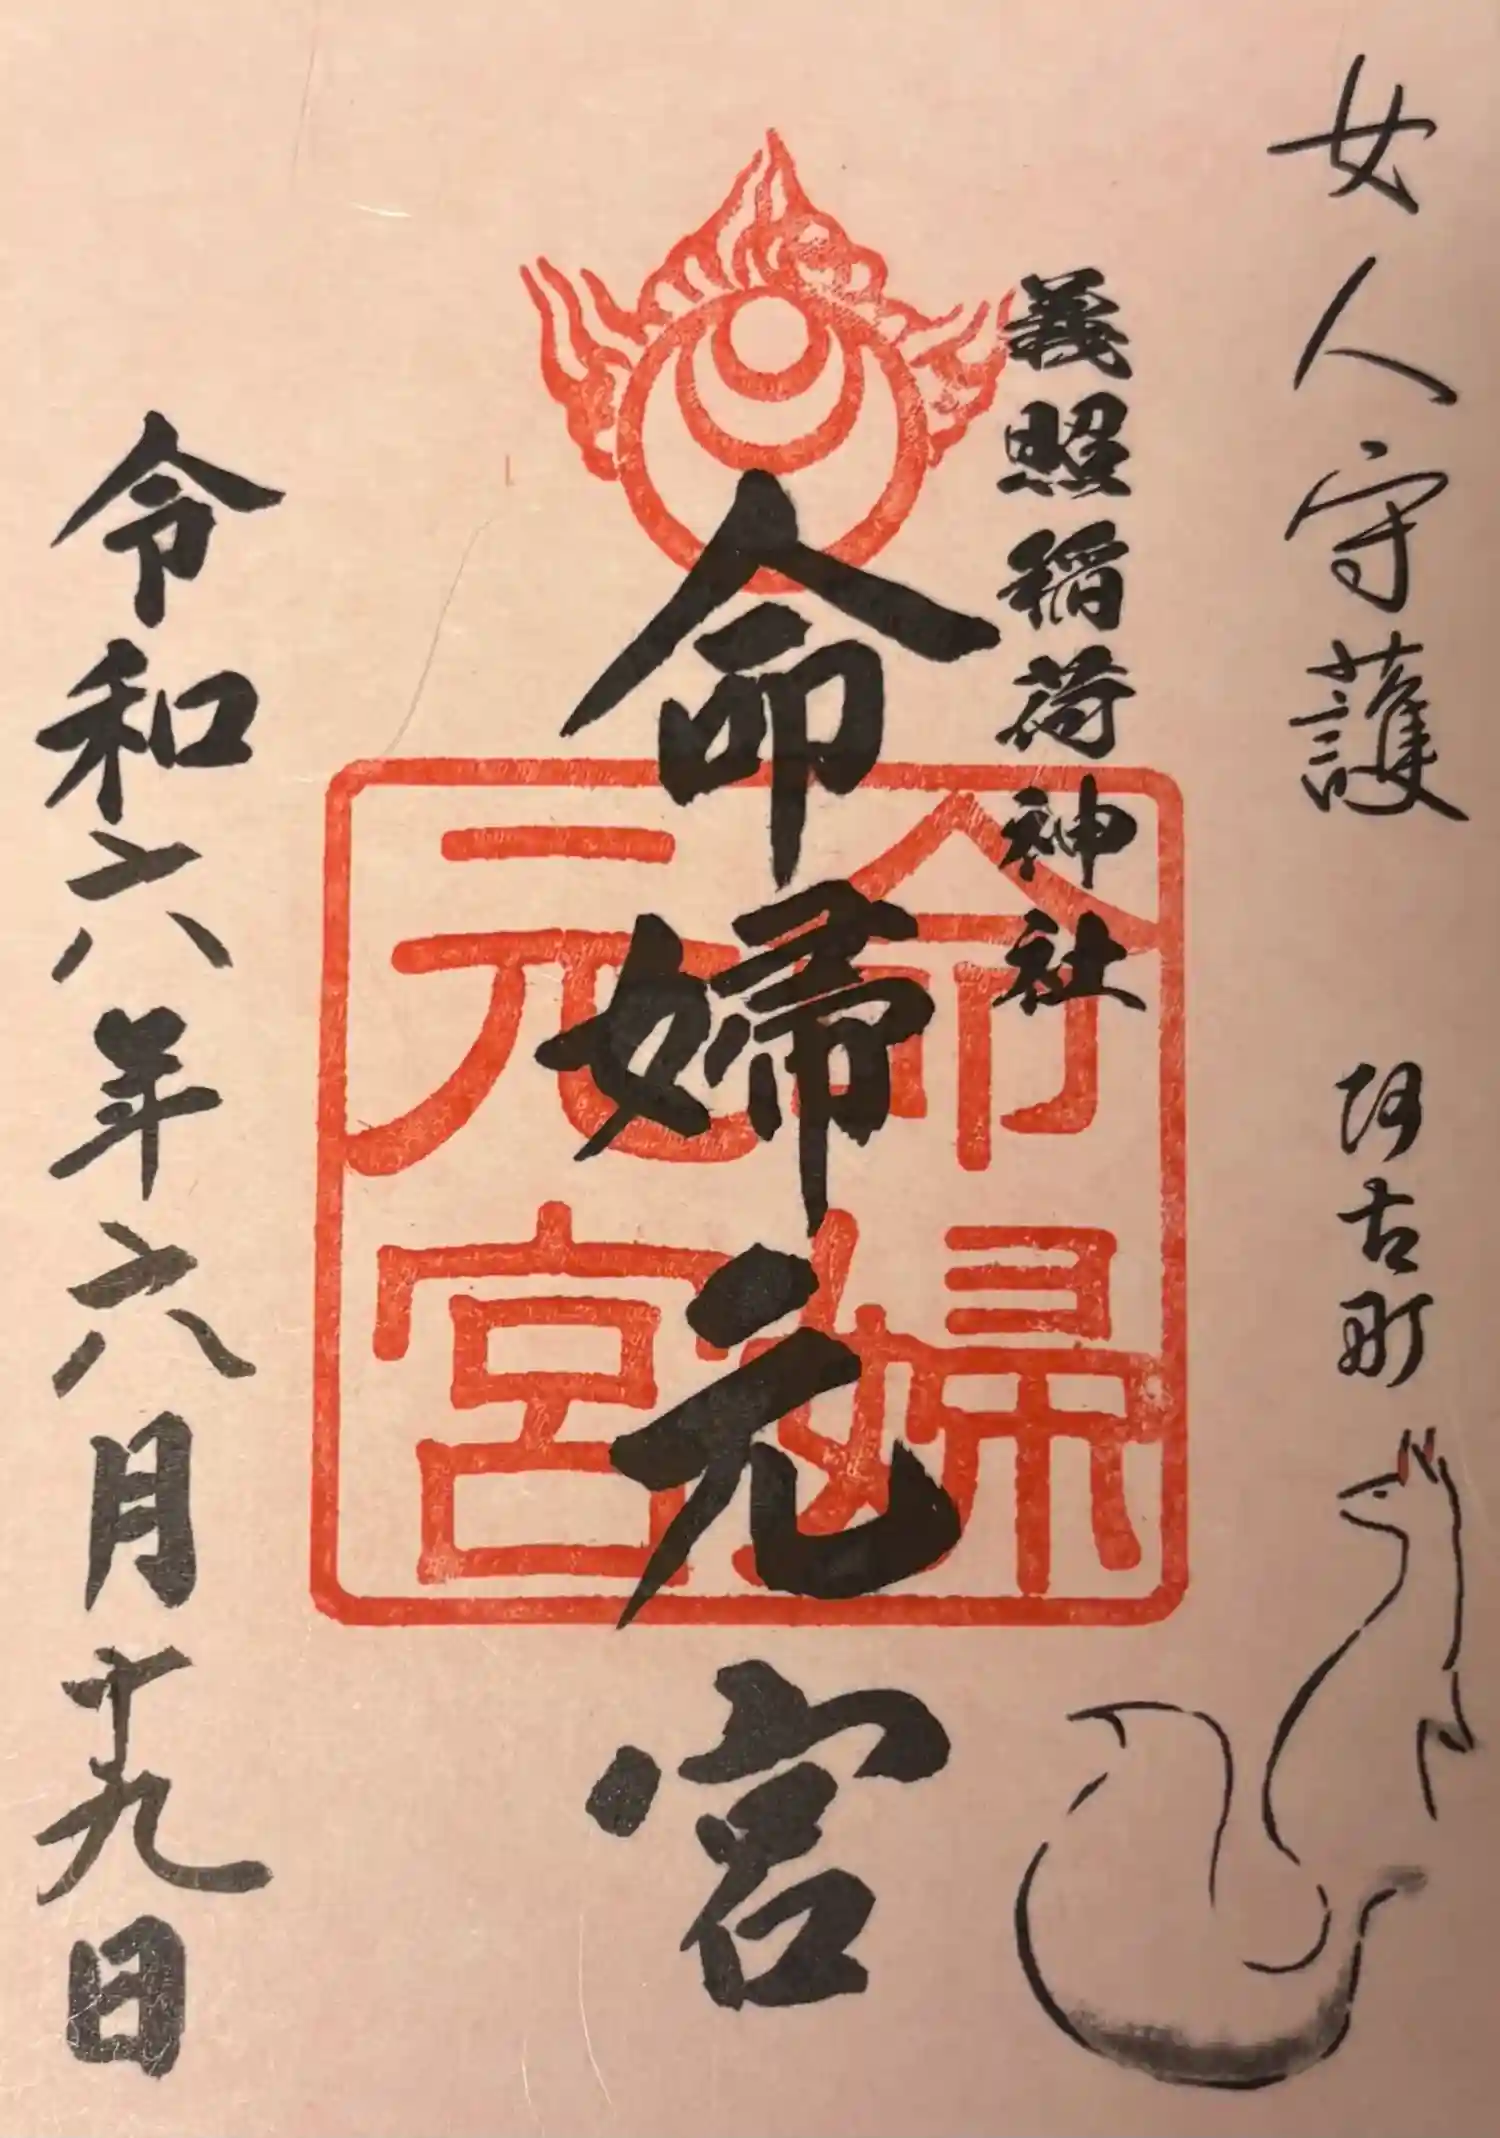 女人守護 阿古町
義照稲荷神社
命婦元宮
命婦元宮
令和六年六月十九日